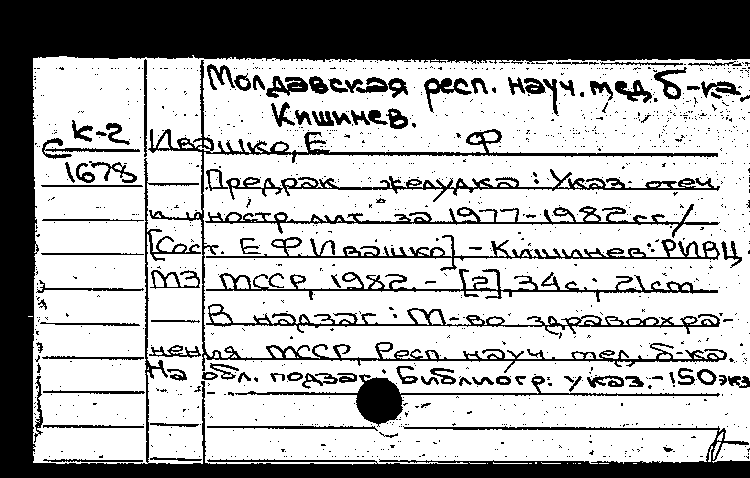 Молдавская респ. науч. мед. б-ка,
Кишинев.
К-2
С
1678
Ивашко, Е Ф
Предрак желудка : Указ. отеч.
и иностр. лит. за 1977-1982 гг. /
[Сост. Е. Ф. Ивашко]. - Кишинев: РИВЦ
МЗ МССР, 1982. - [2], 34 с.; 21 cm
В надзаг. : М-во здравоохра-
нения МССР, Респ. науч. мед. б-ка.
На обл. подзаг.: Библиогр. указ. - 150 экз